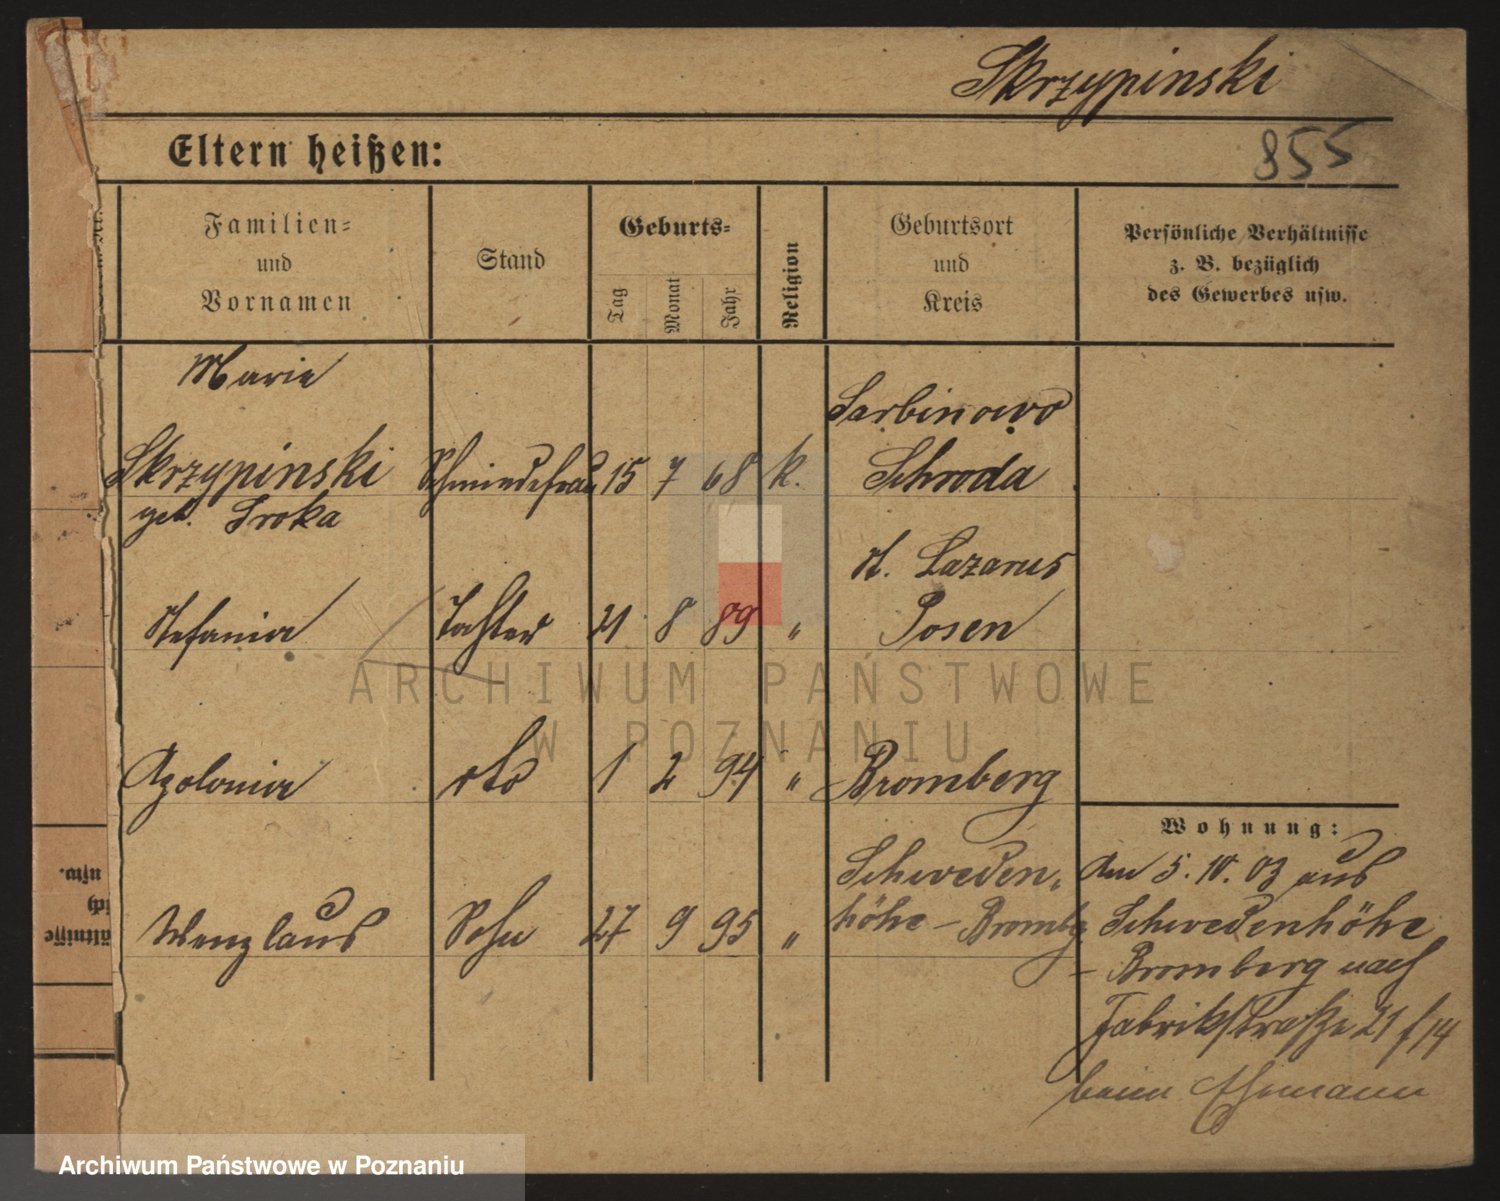 Skrzypinski
855
Eltern heißen:
Familien-
und
Vornamen
Stand
Geburts-
Tag
Monat
Jahr
Religion
Geburtsort
und
Kreis
Persönliche Verhältnisse
z. B. bezüglich
des Gewerbes usw.
Marie
Skrzypinski Schmiedefrau 15 7 68 k.
geb. Sroka
Sarbinowo
Schroda
Stefania Tochter 21 8 89 "
St. Lazarus
Posen
Apolonia dto 1 2 94 " Bromberg
Wenzlaus Sohn 27 9 95 "
Schweden-
höhe - Brombg
Wohnung:
Am 5. 10. 03 aus
Schwedenhöhe
- Bromberg nach
Fabrikstraße 21 f/14
beim Ehemann
usw.
ich
ältnisse
ARCHIWUM PAŃSTWOWE
W POZNANIU
Archiwum Państwowe w Poznaniu